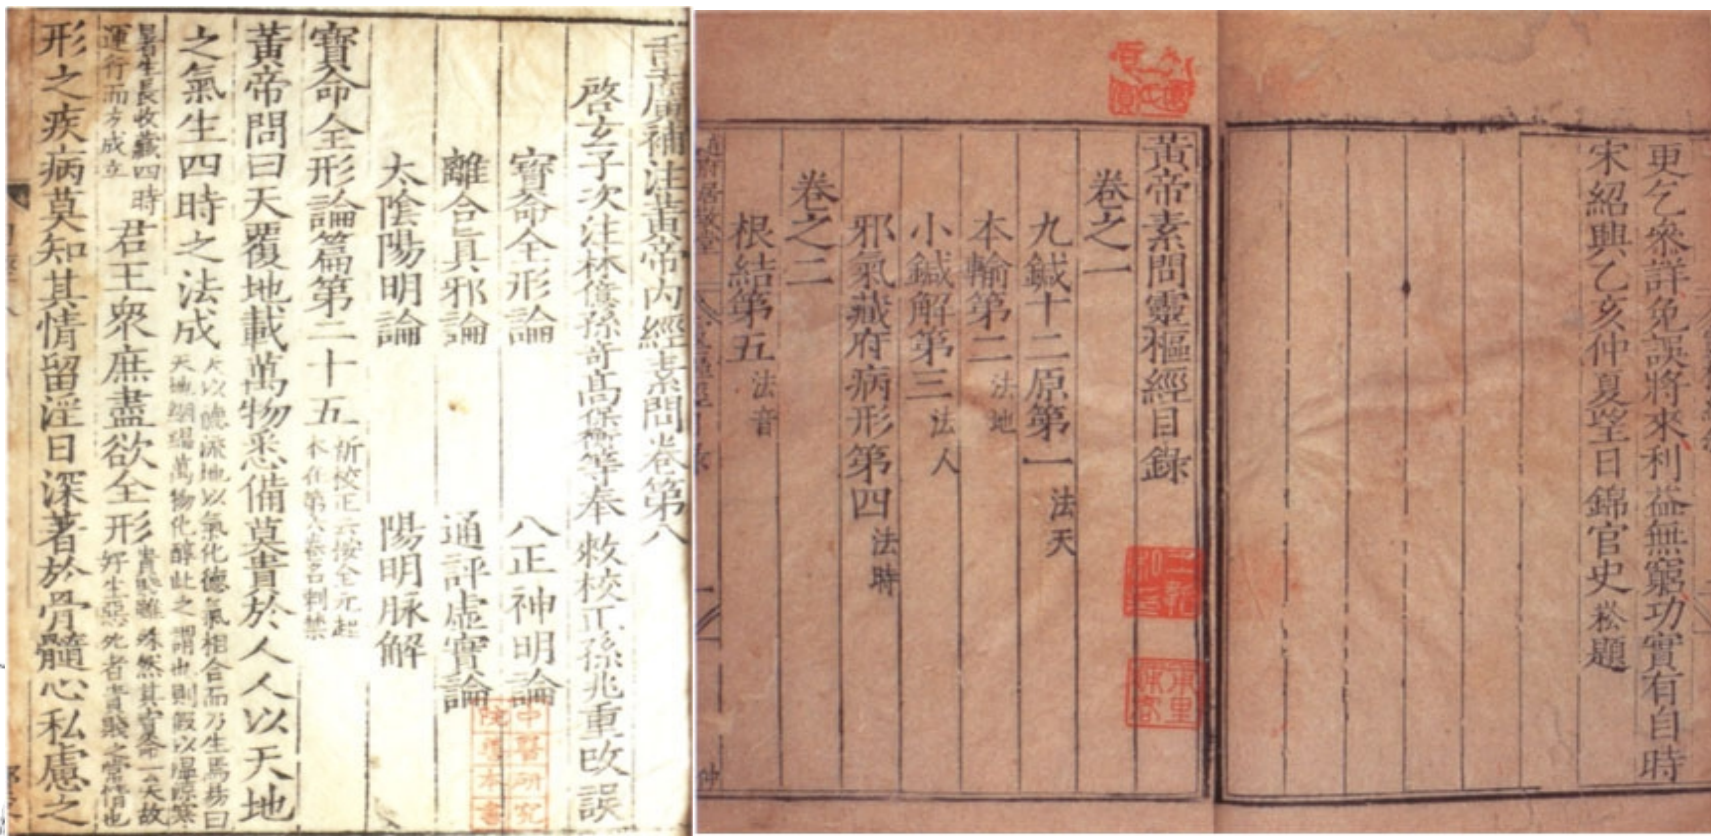 重廣補注黃帝內經素問卷第八
啓玄子次注林億孫奇高保衡等奉 敕校正孫兆重改誤
寶命全形論 八正神明論
離合真邪論 通評虛實論
太陰陽明論 陽明脉解
寶命全形論篇第二十五 新校正云按全元起
本在第六卷名刺禁
黃帝問曰天覆地載萬物悉備莫貴於人人以天地
之氣生四時之法成 天以德流地以氣化德氣相合而乃生焉易曰
天地絪縕萬物化醇此之謂也則假以溫涼寒
暑生長收藏四時
運行而方成立
君王衆庶盡欲全形 貴賤雖殊然其寶命一矣故
好生惡死者貴賤之常情也
形之疾病莫知其情留淫日深著於骨髓心私慮之
中醫研究
院善本書
更乞參詳免誤將來利益無窮功實有自時
宋紹興乙亥仲夏望日錦官史崧題
黃帝素問靈樞經目錄
卷之一
九鍼十二原第一 法天
本輸第二 法地
小鍼解第三 法人
邪氣藏府病形第四 法時
卷之二
根結第五 法音
趙府居敬堂